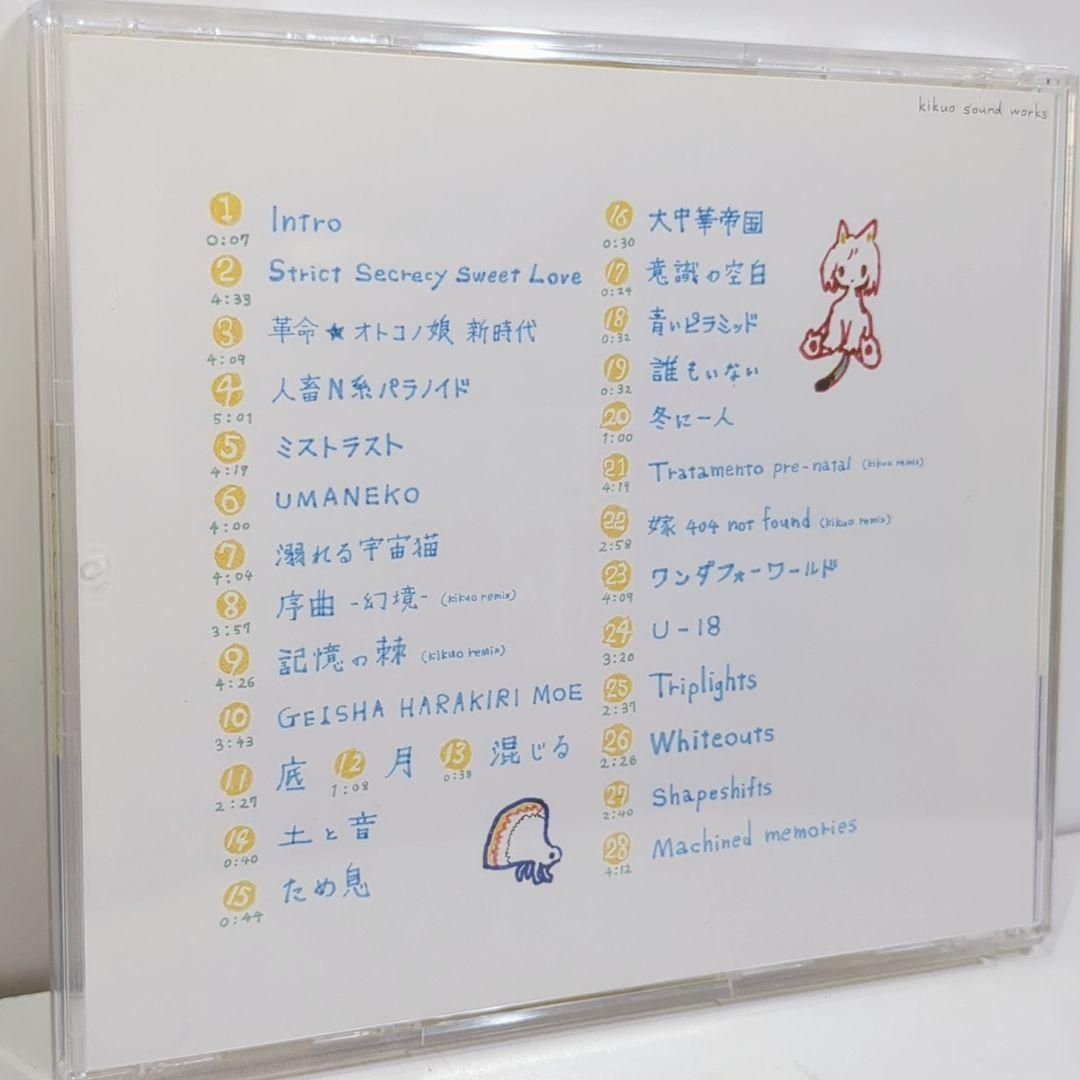 kikuo sound works
1 Intro
0:07
2 Strict Secrecy Sweet Love
4:33
3 革命★オトコノ娘 新時代
4:09
4 人畜N系パラノイド
5:01
5 ミストラスト
4:19
6 UMANEKO
4:00
7 溺れる宇宙猫
4:04
8 序曲 -幻境- (kikuo remix)
3:57
9 記憶の棘 (kikuo remix)
4:26
10 GEISHA HARAKIRI MOE
3:43
11 底 12 月 13 混じる
2:27 1:08 0:38
14 土と音
0:40
15 ため息
0:44
16 大中華帝国
0:30
17 意識の空白
0:29
18 青いピラミッド
0:32
19 誰もいない
0:32
20 冬に一人
1:00
21 Tratamento pre-natal (kikuo remix)
4:19
22 嫁 404 not found (kikuo remix)
2:58
23 ワンダフォーワールド
4:09
24 U-18
3:20
25 Triplights
2:37
26 Whiteouts
2:26
27 Shapeshifts
2:40
28 Machined memories
4:12